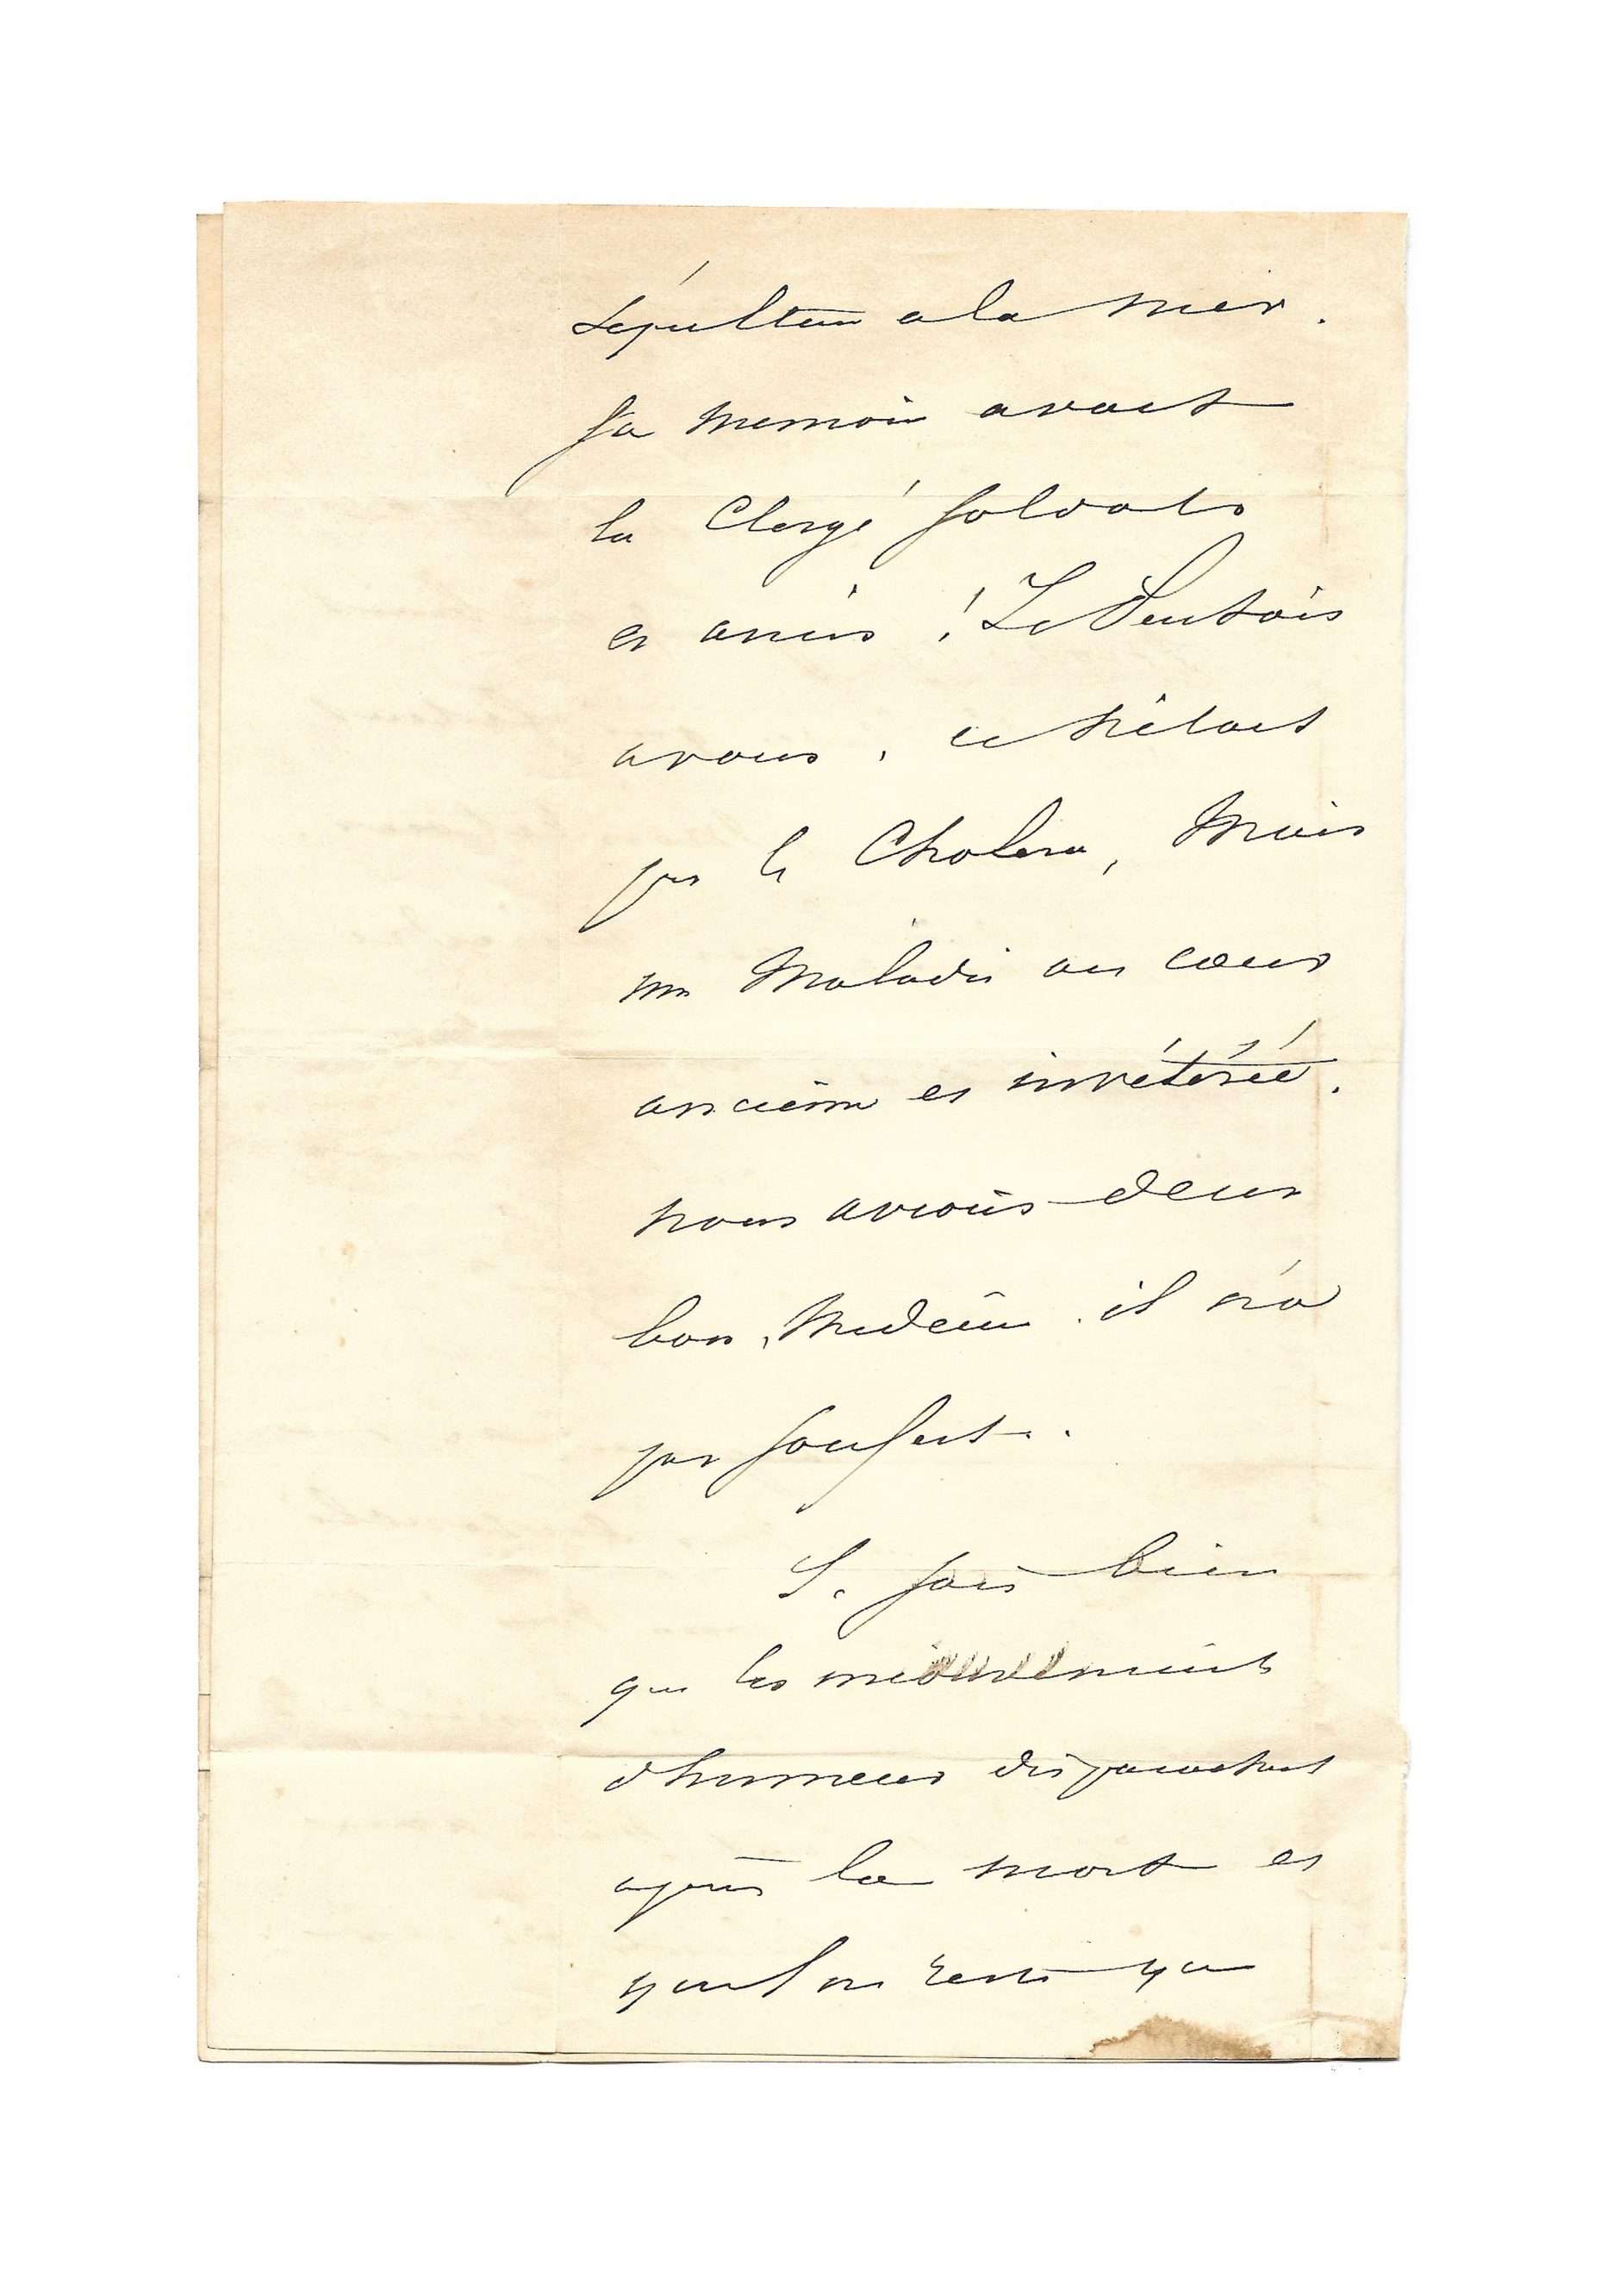 sépulture a la mer.
Sa memoire avait
le Clergé soldats
et amis! Je
avous, ce n'etait
pas le Cholera, Mais
une Maladie au coeur
ancienne et invétérée.
nous avions deux
bons Medecins. il n'a
pas soufert..
Je sais bien
que les mouvements
d'humeur disparaissent
après la mort et
qu'il ne reste que